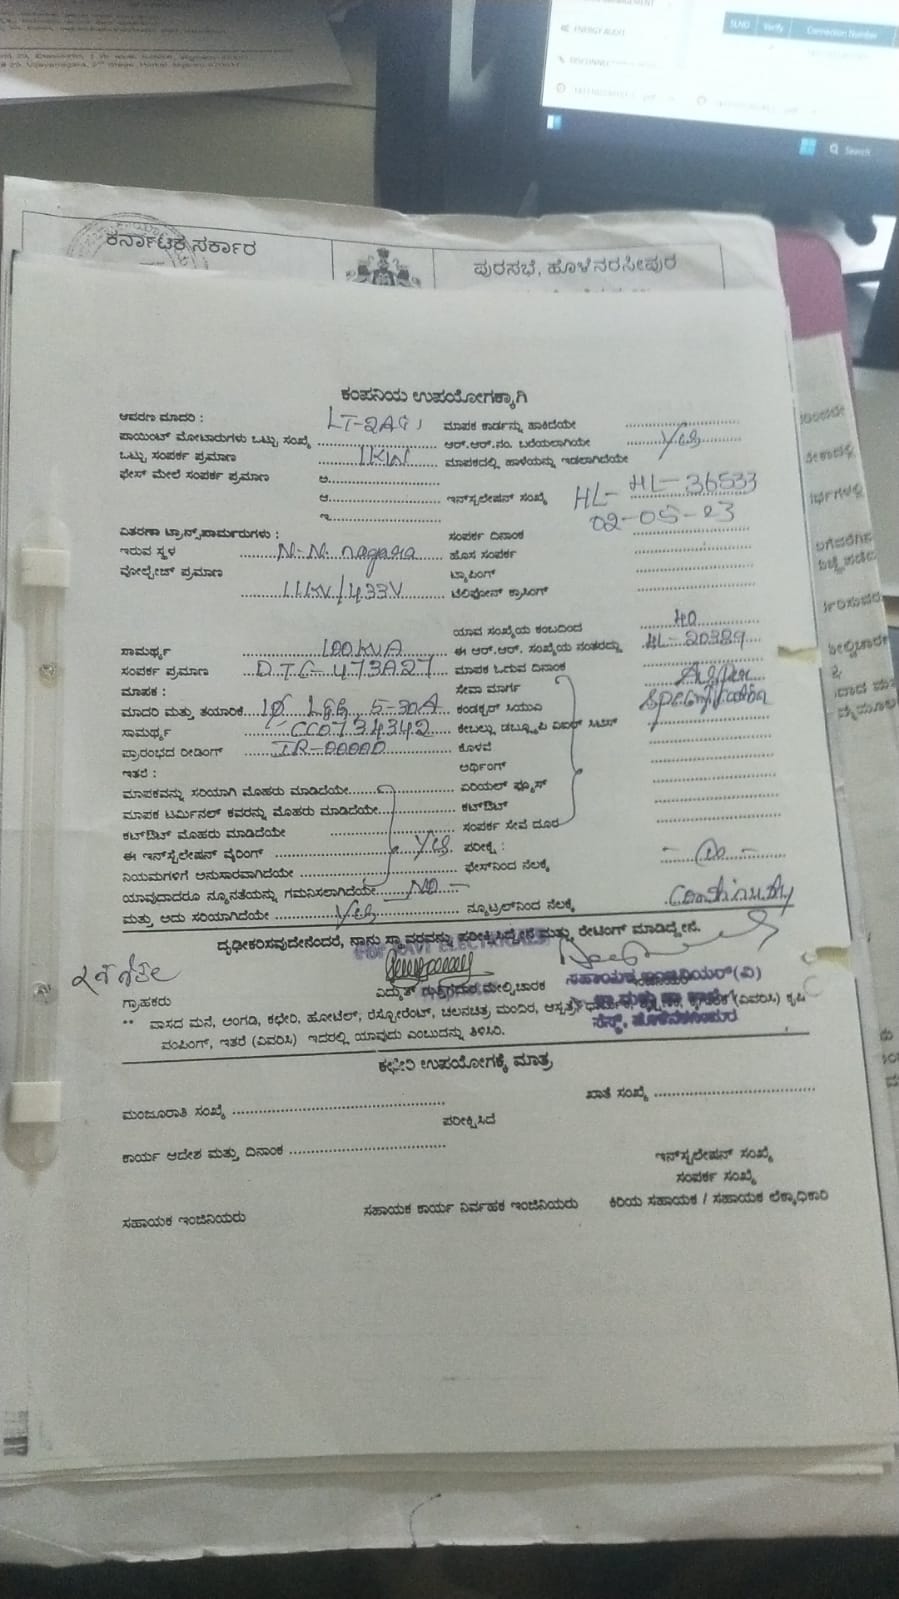 ENERGY AUDIT
SLNO Verify Connection Number
Search
ಕರ್ನಾಟಕ ಸರ್ಕಾರ
ಪುರಸಭೆ, ಹೊಳೆನರಸೀಪುರ
ಕಂಪನಿಯ ಉಪಯೋಗಕ್ಕಾಗಿ
ಆವರಣ ಮಾದರಿ : LT-2A ಮಾಪಕ ಕಾರ್ಡನ್ನು ಹಾಕಿದೆಯೇ
ಪಾಯಿಂಟ್ ಮೋಟಾರುಗಳು ಒಟ್ಟು ಸಂಖ್ಯೆ ಆರ್.ಆರ್.ನಂ. ಬರೆಯಲಾಗಿಯೇ Yes
ಒಟ್ಟು ಸಂಪರ್ಕ ಪ್ರಮಾಣ 1KW ಮಾಪಕದಲ್ಲಿ ಹಾಳೆಯನ್ನು ಇಡಲಾಗಿದೆಯೇ
ಫೇಸ್ ಮೇಲೆ ಸಂಪರ್ಕ ಪ್ರಮಾಣ ಅ
ಆ ಇನ್‌ಸ್ಟಲೇಷನ್ ಸಂಖ್ಯೆ HL- HL-36533
ಇ 02-05-23
ವಿತರಣಾ ಟ್ರಾನ್ಸ್‌ಫಾರ್ಮರುಗಳು : ಸಂಪರ್ಕ ದಿನಾಂಕ
ಇರುವ ಸ್ಥಳ N.N. nagara ಹೊಸ ಸಂಪರ್ಕ
ವೋಲ್ಟೇಜ್ ಪ್ರಮಾಣ 11KV/433V ಟ್ಯಾಪಿಂಗ್
ಟೆಲಿಫೋನ್ ಕ್ರಾಸಿಂಗ್
ಯಾವ ಸಂಖ್ಯೆಯ ಕಂಬದಿಂದ 40
ಸಾಮರ್ಥ್ಯ 100KVA ಈ ಆರ್.ಆರ್. ಸಂಖ್ಯೆಯ ನಂತರದ್ದು HL-20389
ಸಂಪರ್ಕ ಪ್ರಮಾಣ D.T.C-473A27 ಮಾಪಕ ಓದುವ ದಿನಾಂಕ As per
ಮಾಪಕ : ಸೇವಾ ಮಾರ್ಗ Specification
ಮಾದರಿ ಮತ್ತು ತಯಾರಿಕೆ 5-30A ಕಂಡಕ್ಟರ್ ಸಿಯುಎ
ಸಾಮರ್ಥ್ಯ CC0734342 ಕೇಬಲ್ಲು ಡಬ್ಲ್ಯೂಪಿ
ಪ್ರಾರಂಭದ ರೀಡಿಂಗ್ IR-00000 ಕೊಳವೆ
ಇತರೆ : ಅರ್ಥಿಂಗ್
ಮಾಪಕವನ್ನು ಸರಿಯಾಗಿ ಮೊಹರು ಮಾಡಿದೆಯೇ ಏರಿಯಲ್ ಫ್ಯೂಸ್
ಮಾಪಕ ಟರ್ಮಿನಲ್ ಕವರನ್ನು ಮೊಹರು ಮಾಡಿದೆಯೇ ಕಟ್‌ಔಟ್
ಕಟ್‌ಔಟ್ ಮೊಹರು ಮಾಡಿದೆಯೇ ಸಂಪರ್ಕ ಸೇವೆ ದೂರ
ಈ ಇನ್‌ಸ್ಟಲೇಷನ್ ವೈರಿಂಗ್ Yes ಪರೀಕ್ಷೆ :
ನಿಯಮಗಳಿಗೆ ಅನುಸಾರವಾಗಿದೆಯೇ ಫೇಸ್‌ನಿಂದ ನೆಲಕ್ಕೆ
ಯಾವುದಾದರೂ ನ್ಯೂನತೆಯನ್ನು ಗಮನಿಸಲಾಗಿದೆಯೇ NO
ಮತ್ತು ಅದು ಸರಿಯಾಗಿದೆಯೇ Yes ನ್ಯೂಟ್ರಲ್‌ನಿಂದ ನೆಲಕ್ಕೆ Continuity
ದೃಢೀಕರಿಸವುದೇನೆಂದರೆ, ನಾನು ಸ್ಥಾವರವನ್ನು ಪರೀಕ್ಷಿಸಿದ್ದೇನೆ ಮತ್ತು ರೇಟಿಂಗ್ ಮಾಡಿದ್ದೇನೆ.
ಸಹಾಯಕ ಇಂಜಿನಿಯರ್(ವಿ)
ಗ್ರಾಹಕರು ವಿದ್ಯುತ್ ಗುತ್ತಿಗೆದಾರ ಮೇಲ್ವಿಚಾರಕ
** ವಾಸದ ಮನೆ, ಅಂಗಡಿ, ಕಛೇರಿ, ಹೋಟೆಲ್, ರೆಸ್ಟೋರೆಂಟ್, ಚಲನಚಿತ್ರ ಮಂದಿರ, ಆಸ್ಪತ್ರೆ, (ವಿವರಿಸಿ) ಕೃಷಿ
ಪಂಪಿಂಗ್, ಇತರೆ (ವಿವರಿಸಿ) ಇದರಲ್ಲಿ ಯಾವುದು ಎಂಬುದನ್ನು ತಿಳಿಸಿರಿ.
ಕಛೇರಿ ಉಪಯೋಗಕ್ಕೆ ಮಾತ್ರ
ಮಂಜೂರಾತಿ ಸಂಖ್ಯೆ ಖಾತೆ ಸಂಖ್ಯೆ
ಪರೀಕ್ಷಿಸಿದೆ
ಕಾರ್ಯ ಆದೇಶ ಮತ್ತು ದಿನಾಂಕ
ಇನ್‌ಸ್ಟಲೇಷನ್ ಸಂಖ್ಯೆ
ಸಂಪರ್ಕ ಸಂಖ್ಯೆ
ಸಹಾಯಕ ಇಂಜಿನಿಯರು ಸಹಾಯಕ ಕಾರ್ಯ ನಿರ್ವಹಕ ಇಂಜಿನಿಯರು ಕಿರಿಯ ಸಹಾಯಕ / ಸಹಾಯಕ ಲೆಕ್ಕಾಧಿಕಾರಿ